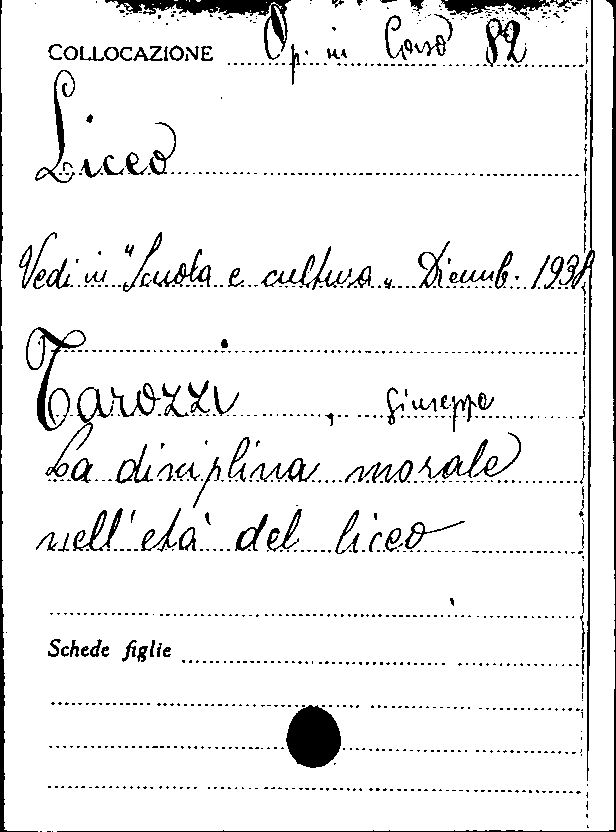 COLLOCAZIONE Op. in Corso 82
Liceo
Vedi in "Scuola e cultura„ Dicemb. 1938
Tarozzi, Giuseppe
La disciplina morale
nell'età del liceo
Schede figlie